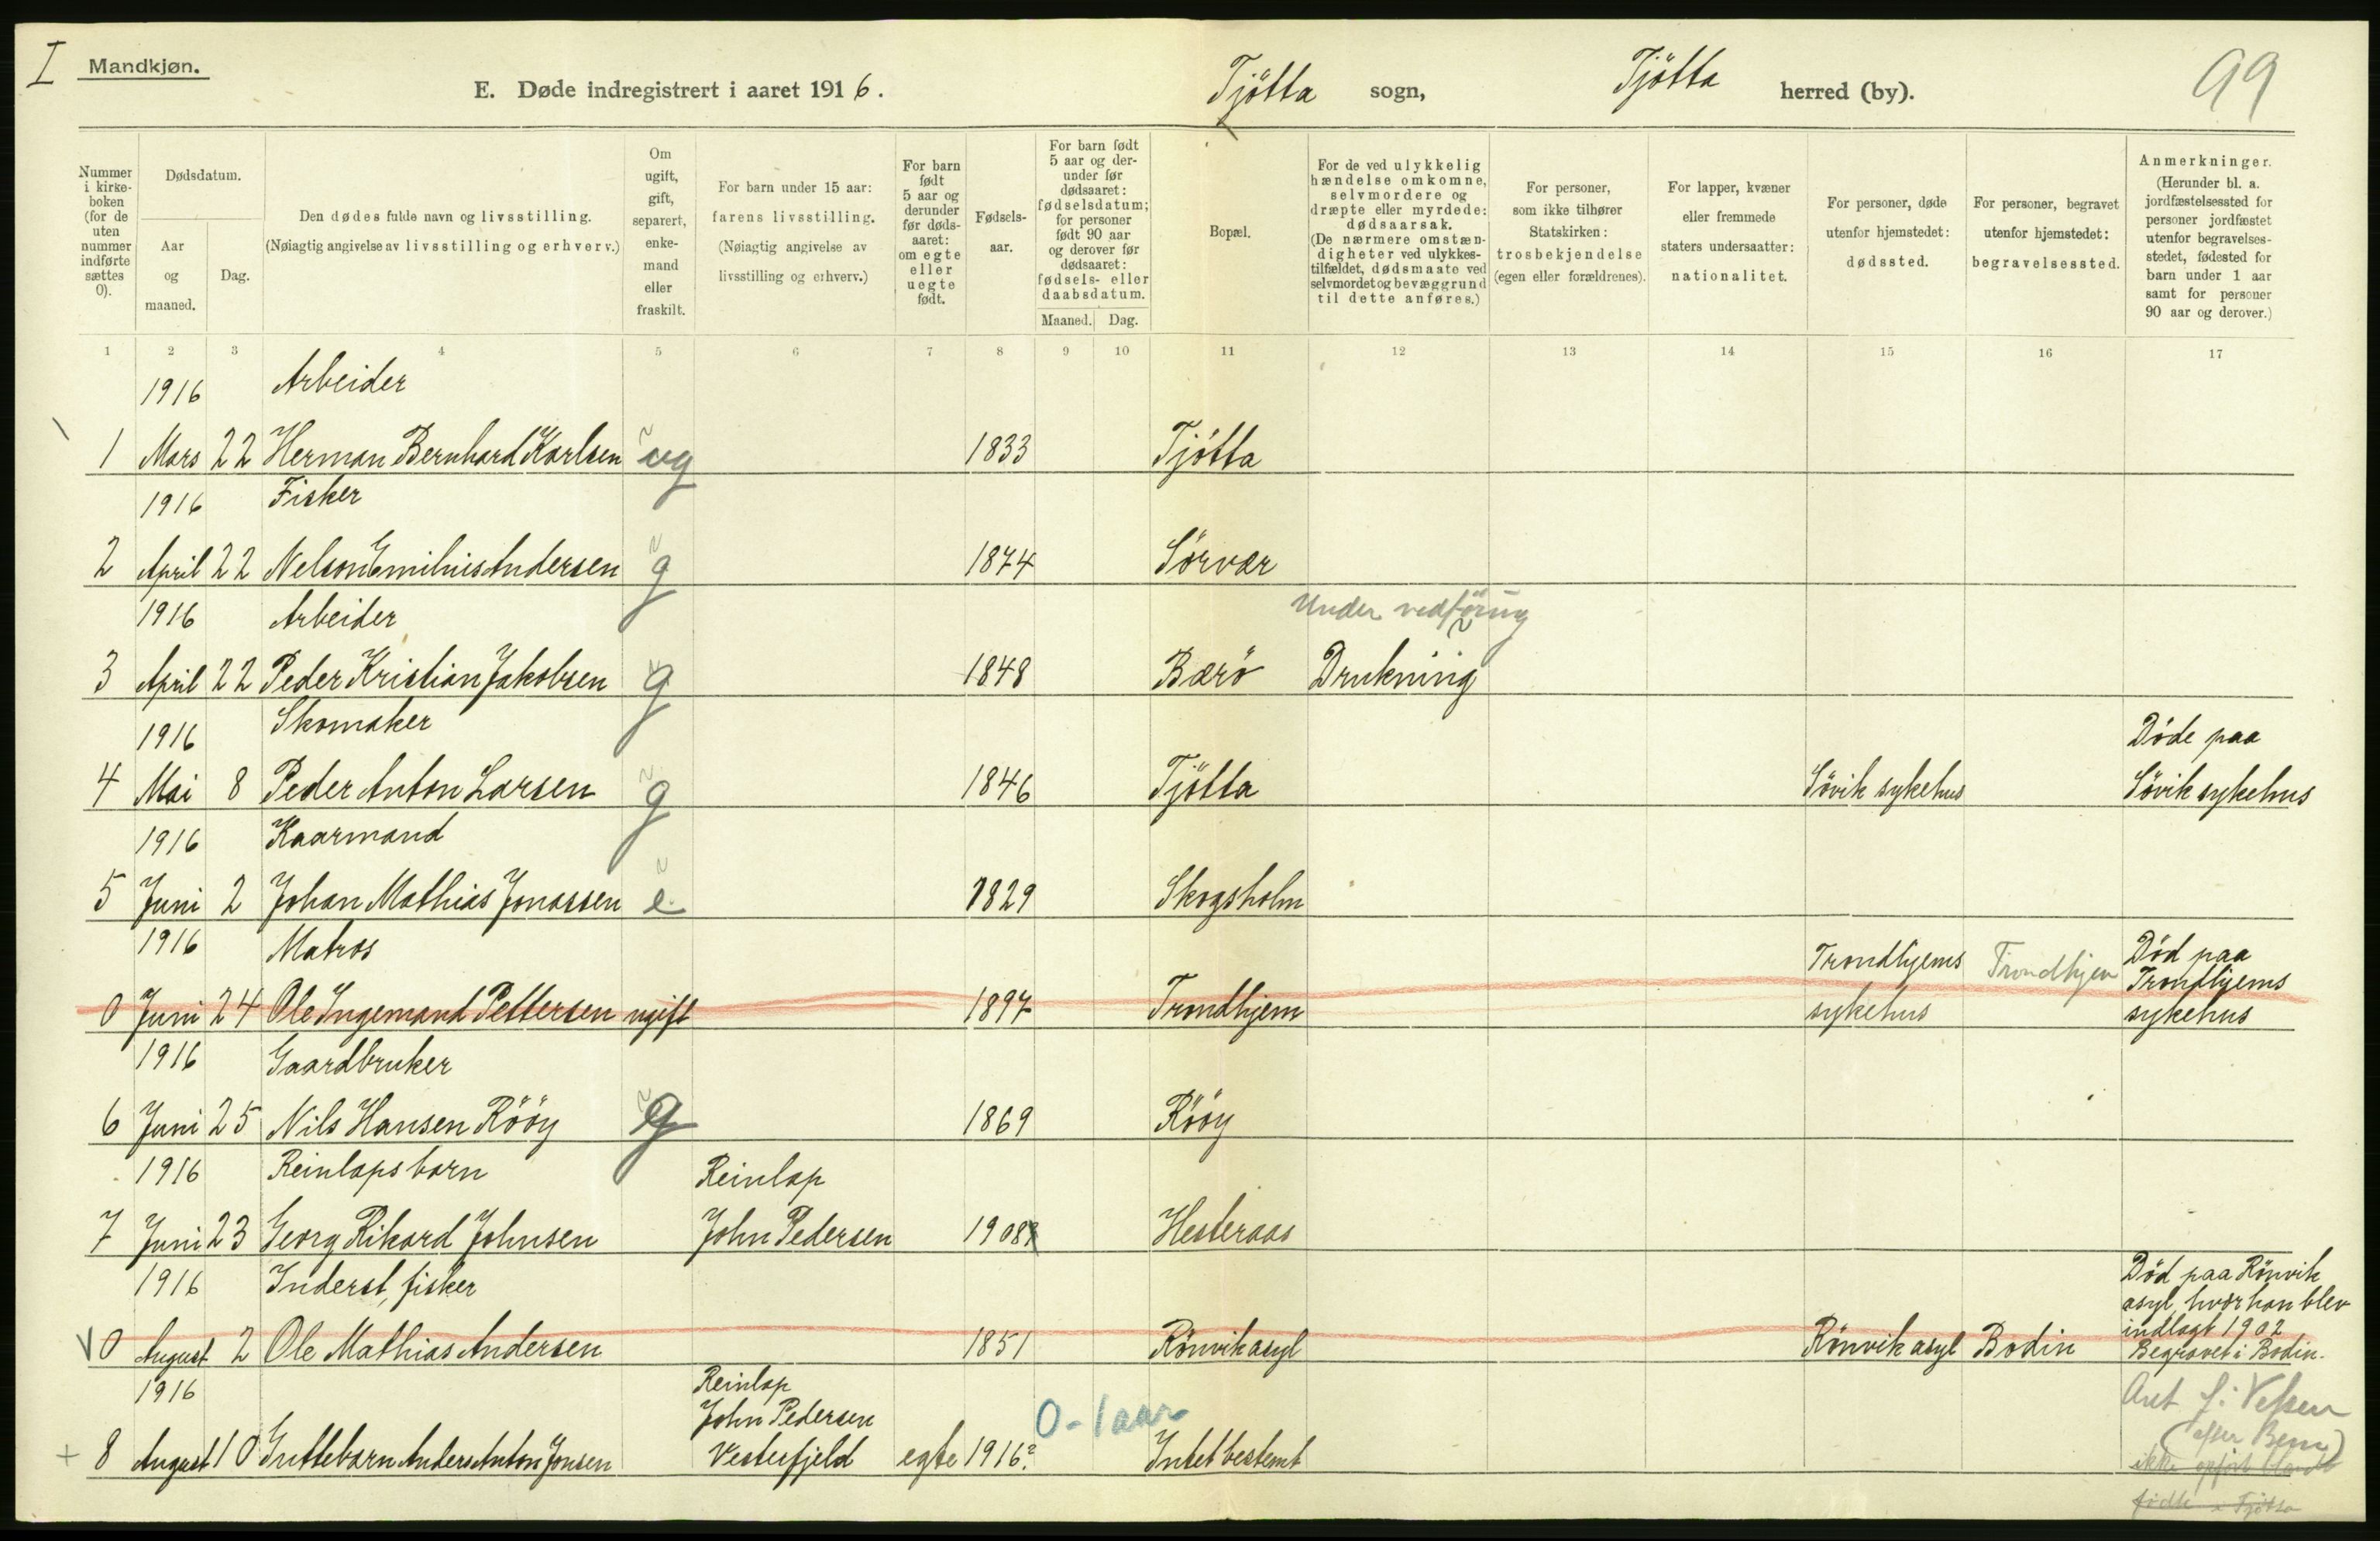 I Mandkjøn.
E. Døde indregistrert i aaret 1916.
Tjötta sogn,
Tjötta herred (by).
99
Nummer i kirke-boken (for de uten nummer indførte sættes 0).
Dødsdatum.
Aar og maaned.
Dag.
Den dødes fulde navn og livsstilling.
(Nøiagtig angivelse av livsstilling og erhverv.)
Om ugift, gift, separert, enke-mand eller fraskilt.
For barn under 15 aar:
farens livsstilling.
(Nøiagtig angivelse av livsstilling og erhverv.)
For barn født 5 aar og derunder før døds-aaret: om egte eller uegte født.
Fødsels-aar.
For barn født 5 aar og der-under før dødsaaret: fødselsdatum; for personer født 90 aar og derover før dødsaaret: fødsels- eller daabsdatum.
Maaned. Dag.
Bopæl.
For de ved ulykkelig hændelse omkomne, selvmordere og dræpte eller myrdede: dødsaarsak.
(De nærmere omstæn-digheter ved ulykkes-tilfældet, dødsmaate ved selvmordet og bevæggrund til dette anføres.)
For personer, som ikke tilhører Statskirken: trosbekjendelse (egen eller forældrenes).
For lapper, kvæner eller fremmede staters undersaatter: nationalitet.
For personer, døde utenfor hjemstedet: dødssted.
For personer, begravet utenfor hjemstedet: begravelsessted.
Anmerkninger.
(Herunder bl. a. jordfæstelsessted for personer jordfæstet utenfor begravelses-stedet, fødested for barn under 1 aar samt for personer 90 aar og derover.)
1 2 3 4 5 6 7 8 9 10 11 12 13 14 15 16 17
1916 Arbeider
1 Mars 22 Herman Bernhard Karlsen ug 1833 Tjötta
1916 Fisker
2 April 22 Nelson Emilius Andersen g 1874 Sörvær
1916 Arbeider Under vedföring
3 April 22 Peder Kristian Jakobsen g 1848 Bærö Drukning
1916 Skomaker Döde paa
4 Mai 8 Peder Anton Larsen g 1846 Tjötta Sövik sykehus Sövik sykehus
1916 Kaarmand
5 Juni 2 Johan Mathias Jonassen e. 1829 Skogsholm
1916 Matros Trondhjems Trondhjem Död paa
Trondhjems
0 Juni 24 Ole Ingemand Pettersen ugift 1897 Trondhjem sykehus sykehus
1916 Gaardbruker
6 Juni 25 Nils Hansen Rööy g 1869 Rööy
1916 Reinlapsbarn Reinlap
7 Juni 23 Georg Rikard Johnsen John Pedersen 1908 Hesteraas
1916 Inderst, fisker Död paa Rönvik
asyl, hvor han blev
indlagt 1902
V 0 August 2 Ole Mathias Andersen 1851 Rönvik asyl Rönvik asyl Bodin Begravet i Bodin.
1916 Reinlap
John Pedersen 0-1 aar
+ 8 August 10 Guttebarn Anders Anton Jonsen Vesterfjeld egte 1916? Intet bestemt
ikke opfört blandt
födte i Tjötta